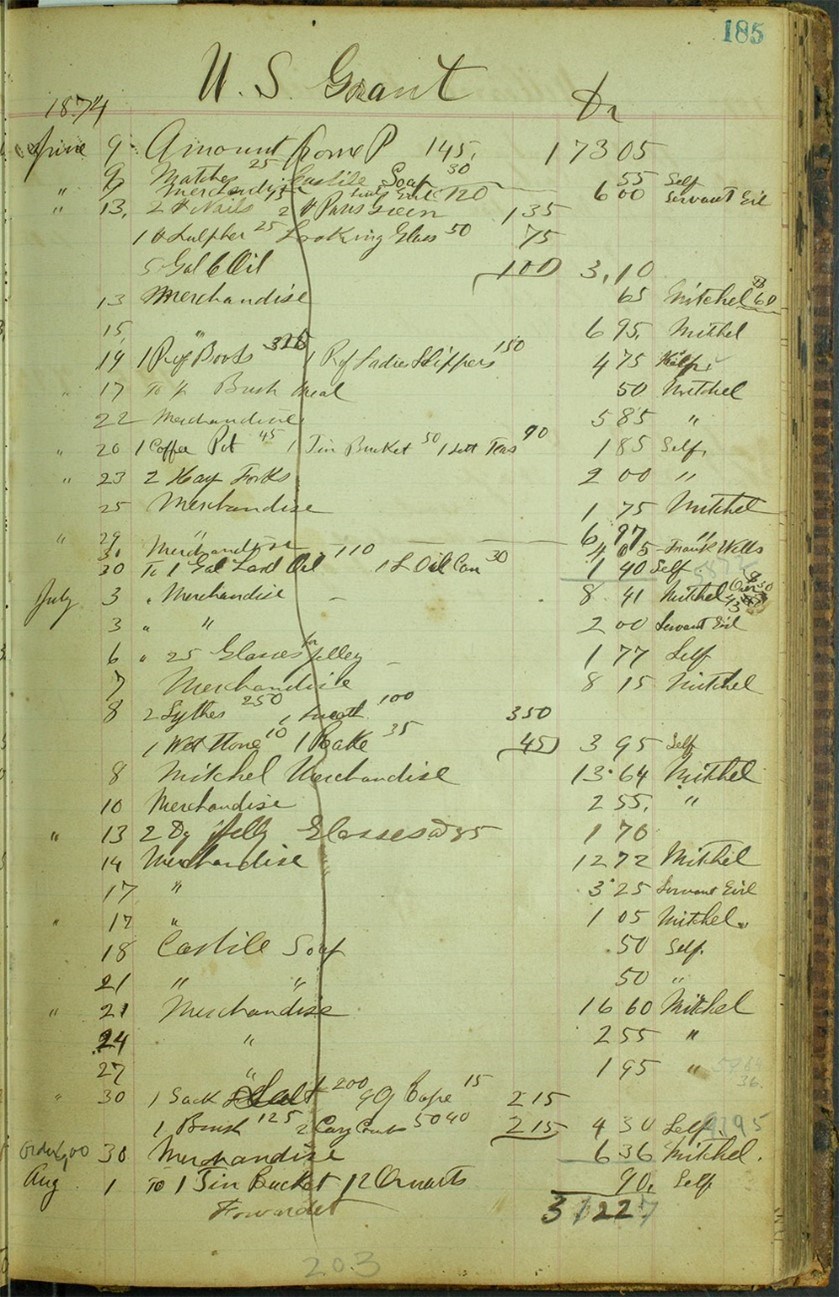 185
U. S. Grant
1874 Dr
June 9 Amount from P 145, 173 05
9 Matches 25 Castile Soap 30 55 Self
" 9 Merchandise 6 00 Servant Girl
" 13, 2 # Nails 2 # Paris Green 120 1 35
1 # Sulpher 25 Looking Glass 50 75
5 Gal C Oil 100 3,10
13 Merchandise 65 Mitchel 60
15, " 6 95, Mitchel
14 1 Pr Boots 325 1 Pr Ladies Slippers 150 4 75 Self
" 17 To Bush Meal 50 Mitchel
22 Merchandise 5 85 "
" 20 1 Coffee Pot 45 1 Tin Bucket 50 1 Sett Teas 90 1 85 Self,
" 23 2 Hay Forks 2 00 "
25 Merchandise 1 75 Mitchel
" 29 " 6,97 "
30 Merchandise 4 05 Frank Wells
30 To 1 Gal Lard Oil 110 1 L Oil Can 30 1 40 Self
July 3 " Merchandise 8 41 Mitchel
3 " " 2 00 Servant Girl
6 " 25 Glasses for Jelley 1 77 Self
7 Merchandise 8 15 Mitchel
8 2 Sythes 250 1 Sneath 100 350
1 Wet Stone 10 1 Rake 35 45 3 95 Self
8 Mitchel Merchandise 13.64 Mitchel
10 Merchandise 2 55, "
" 13 2 Dz Jelly Glasses @ 85 1 70
14 Merchandise 12 72 Mitchel
17 " 3 25 Servant Girl
" 17 " 1 05 Mitchel
18 Castile Soap .50 Self.
21 " " 50 "
" 21 Merchandise 16 60 Mitchel
24 " 2 55 "
27 " 1 95 "
" 30 1 Sack Salt 200 Rope 15 2 15
1 Brush 125 2 Cury Combs 50 40 2 15 4 30 Self
30 Merchandise 6 36 Mitchel.
Aug 1 To 1 Tin Bucket 12 Quarts 90, Self
Forwarded 312 27
203